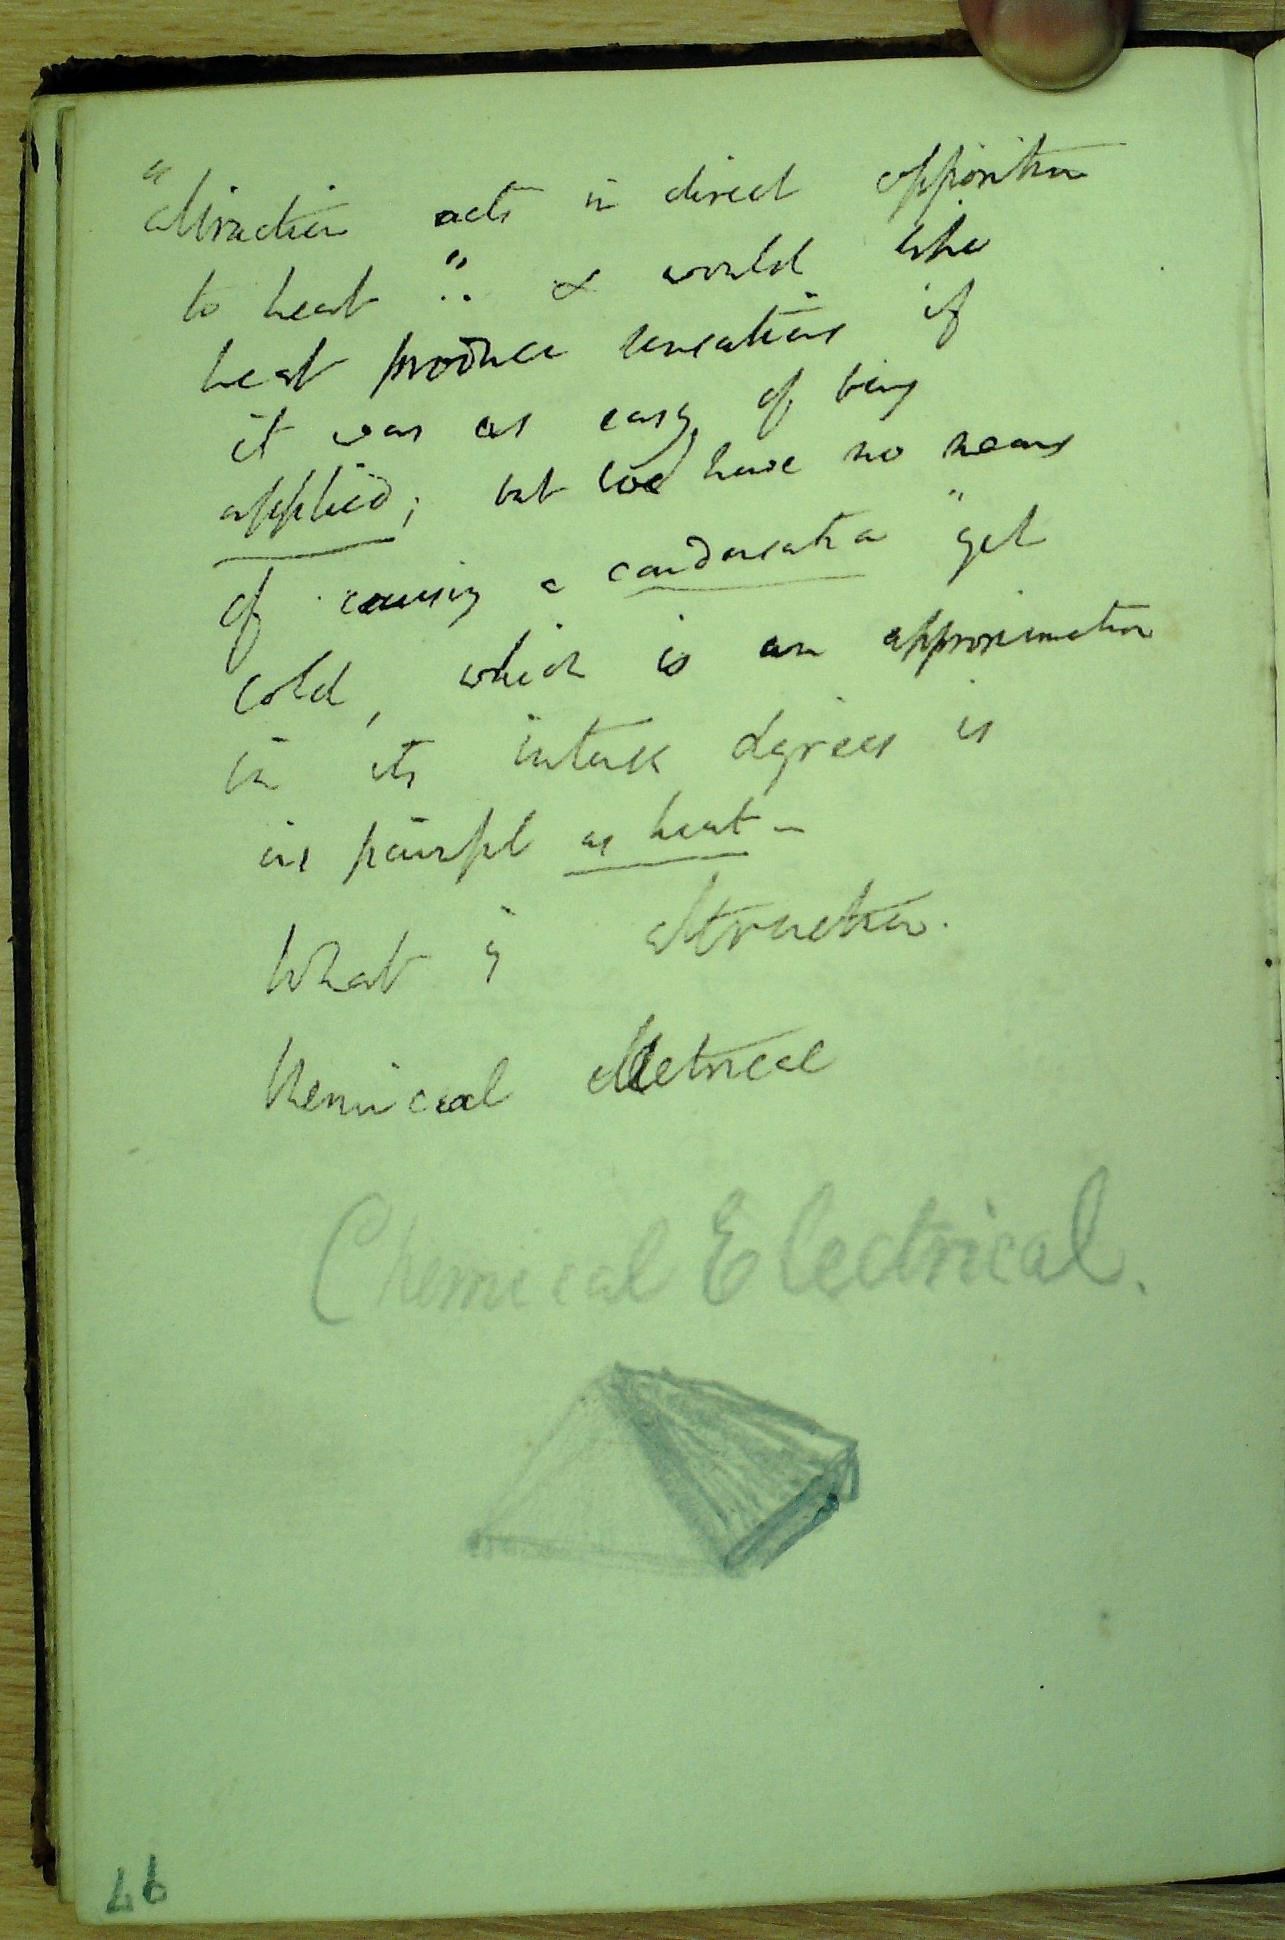 "attraction acts in direct opposition
to heat ". & would like
heat produce sensations if
it was as easy of being
applied; but we have no means
of causing a condensation " yet
cold, which is an approximation
in its intense degrees is
as painful as heat –
What is attraction.
Chemical Electrical
Chemical Electrical.